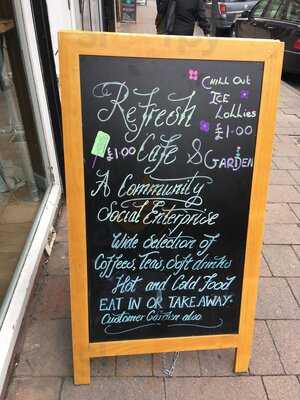 Refresh
CHILL OUT
ICE
Lollies
£1.00
£1.00
Café &
GARDEN
A Community
Social Enterprise
Wide selection of
Coffees, Teas, Soft drinks
Hot and Cold Food
EAT IN OR TAKE AWAY.
Customer Garden also